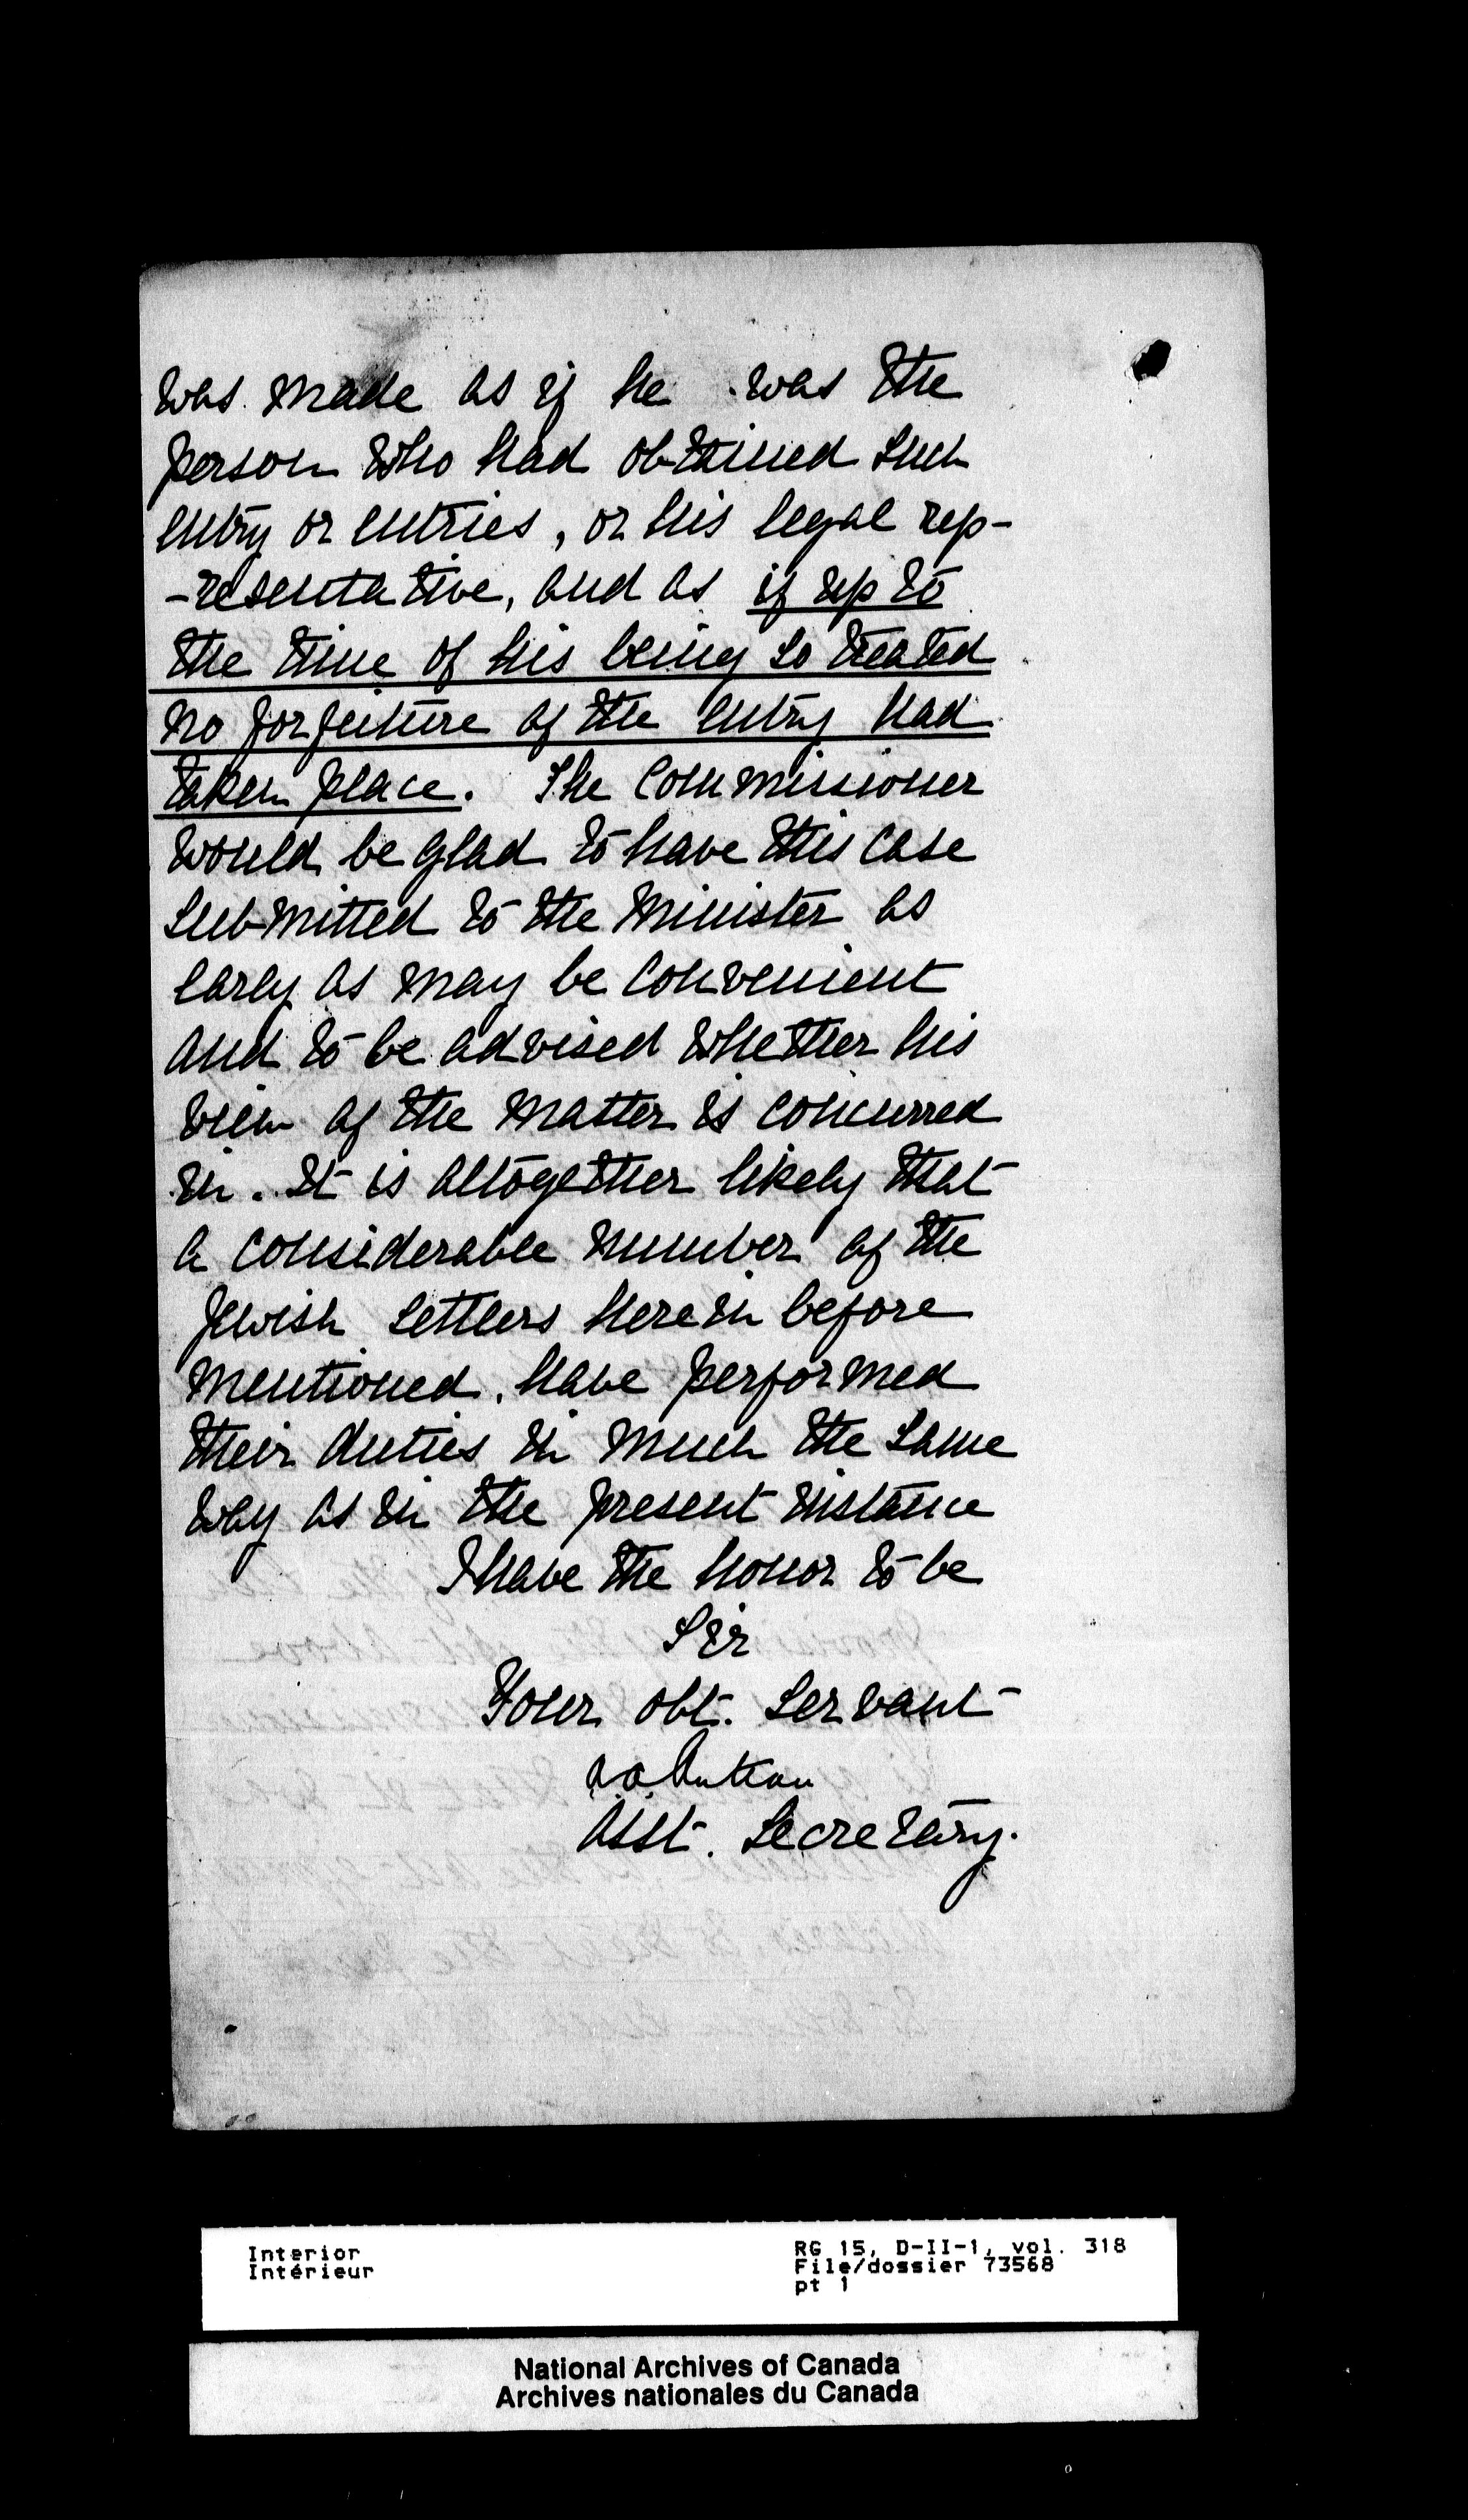 was made as if he was the
person who had obtained such
entry or entries, or his legal rep-
-resentative, and as if up to
the time of his being so treated
no forfeiture of the entry had
taken place. The Commissioner
would be glad to have this case
submitted to the Minister as
early as may be convenient
and to be advised whether his
view of the matter is concurred
in. It is altogether likely that
a considerable number of the
Jewish settlers herein before
mentioned, have performed
their duties in much the same
way as in the present instance
I have the honor to be
Sir
Your obt. servant
Asst. Secretary.
Interior
Intérieur
RG 15, D-II-1, vol. 318
File/dossier 73568
pt 1
National Archives of Canada
Archives nationales du Canada